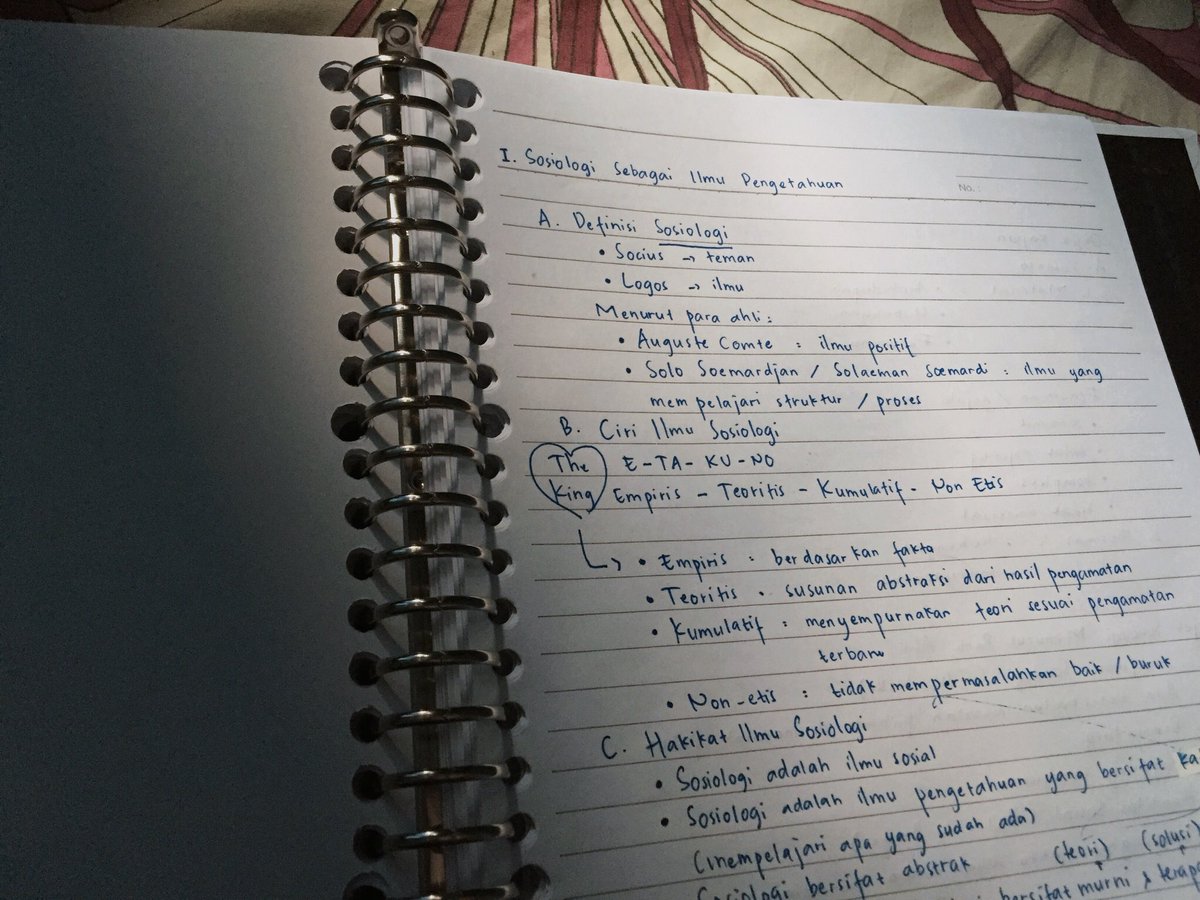 No. :
I. Sosiologi Sebagai Ilmu Pengetahuan
A. Definisi Sosiologi
• Socius → teman
• Logos → ilmu
Menurut para ahli :
• Auguste Comte : ilmu positif
• Solo Soemardjan / Solaeman Soemardi : ilmu yang
mempelajari struktur / proses
B. Ciri Ilmu Sosiologi
The E - TA - KU - NO
King Empiris - Teoritis - Kumulatif - Non Etis
• Empiris : berdasarkan fakta
• Teoritis . susunan abstraksi dari hasil pengamatan
• Kumulatif : menyempurnakan teori sesuai pengamatan
terbaru
• Non-etis : tidak mempermasalahkan baik / buruk
C. Hakikat Ilmu Sosiologi
• Sosiologi adalah ilmu sosial
• Sosiologi adalah ilmu pengetahuan yang bersifat ka
(mempelajari apa yang sudah ada)
(teori) (solusi)
Sosiologi bersifat abstrak
bersifat murni & terap